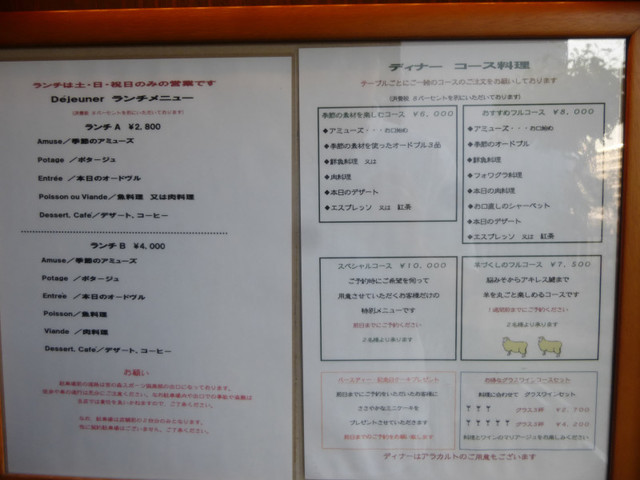 ランチは土・日・祝日のみの営業です
Déjeuner ランチメニュー
(消費税 8パーセントを別にいただいております)
ランチA ¥2,800
Amuse/季節のアミューズ
Potage /ポタージュ
Entrée /本日のオードヴル
Poisson ou Viande/魚料理 又は肉料理
Dessert, Café/デザート、コーヒー
ランチB ¥4,000
Amuse/季節のアミューズ
Potage /ポタージュ
Entrée /本日のオードヴル
Poisson/魚料理
Viande /肉料理
Dessert, Café/デザート、コーヒー
お願い
ディナー コース料理
テーブルごとに一種のコースのご注文をお願いしております
(消費税 8パーセントを別にいただいております)
季節の食材を楽しむコース ¥6,000
◆アミューズ・・・お口始め
◆季節の食材を使ったオードブル3品
◆鮮魚料理 又は
◆肉料理
◆本日のデザート
◆エスプレッソ 又は 紅茶
おすすめフルコース ¥8,000
◆アミューズ・・・お口始め
◆季節のオードブル
◆鮮魚料理
◆フォワグラ料理
◆本日の肉料理
◆お口直しのシャーベット
◆本日のデザート
◆エスプレッソ 又は 紅茶
スペシャルコース ¥10,000
ご予約時にご希望を伺って
用意させていただくお客様だけの
特別メニューです
前日までにご予約ください
2名様より承ります
羊づくしのフルコース ¥7,500
脳みそからアキレス腱まで
羊を丸ごと楽しめるコースです
1週間前までにご予約ください
2名様より承ります
前日までにご予約をいただいたお客様に
ささやかなミニケーキを
プレゼントさせていただきます
前日までのご予約をお願い致します
お得なグラスワインコースセット
料理に合わせて グラスワインセット
グラス3杯 ¥2,700
グラス5杯 ¥4,200
料理とワインのマリアージュをお楽しみください
ディナーはアラカルトのご用意もございます